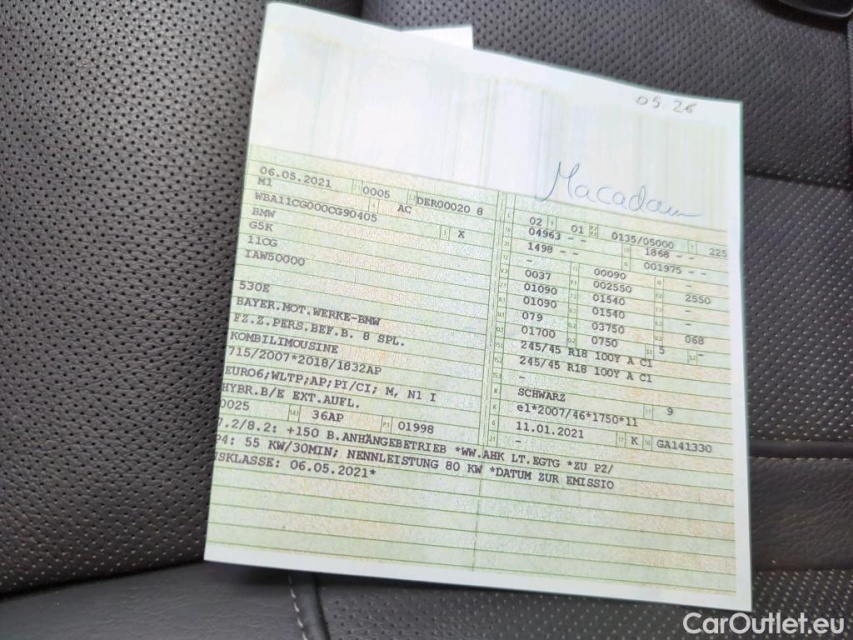 05.26
Macadam
06.05.2021 0005 DER00020 8
M1 AC
WBA11CG000CG90405
BMW X
G5K
11CG
IAW50000
530E
BAYER.MOT.WERKE-BMW
FZ.Z.PERS.BEF.B. 8 SPL.
KOMBILIMOUSINE
715/2007*2018/1832AP
EURO6;WLTP;AP;PI/CI; M, N1 I
HYBR.B/E EXT.AUFL.
0025 36AP 01998
02 01 0135/05000 225
04963 - - 1868 - -
1498 - - 001975 - -
-
0037 00090
01090 002550 2550
01090 01540
079 01540
01700 03750 068
0750 5 -
245/45 R18 100Y A C1
245/45 R18 100Y A C1
-
SCHWARZ 9
e1*2007/46*1750*11
11.01.2021 K GA141330
-
7.2/8.2: +150 B.ANHÄNGEBETRIEB *WW.AHK LT.EGTG *ZU P2/
P4: 55 KW/30MIN; NENNLEISTUNG 80 KW *DATUM ZUR EMISSIO
SKLASSE: 06.05.2021*
CarOutlet.eu